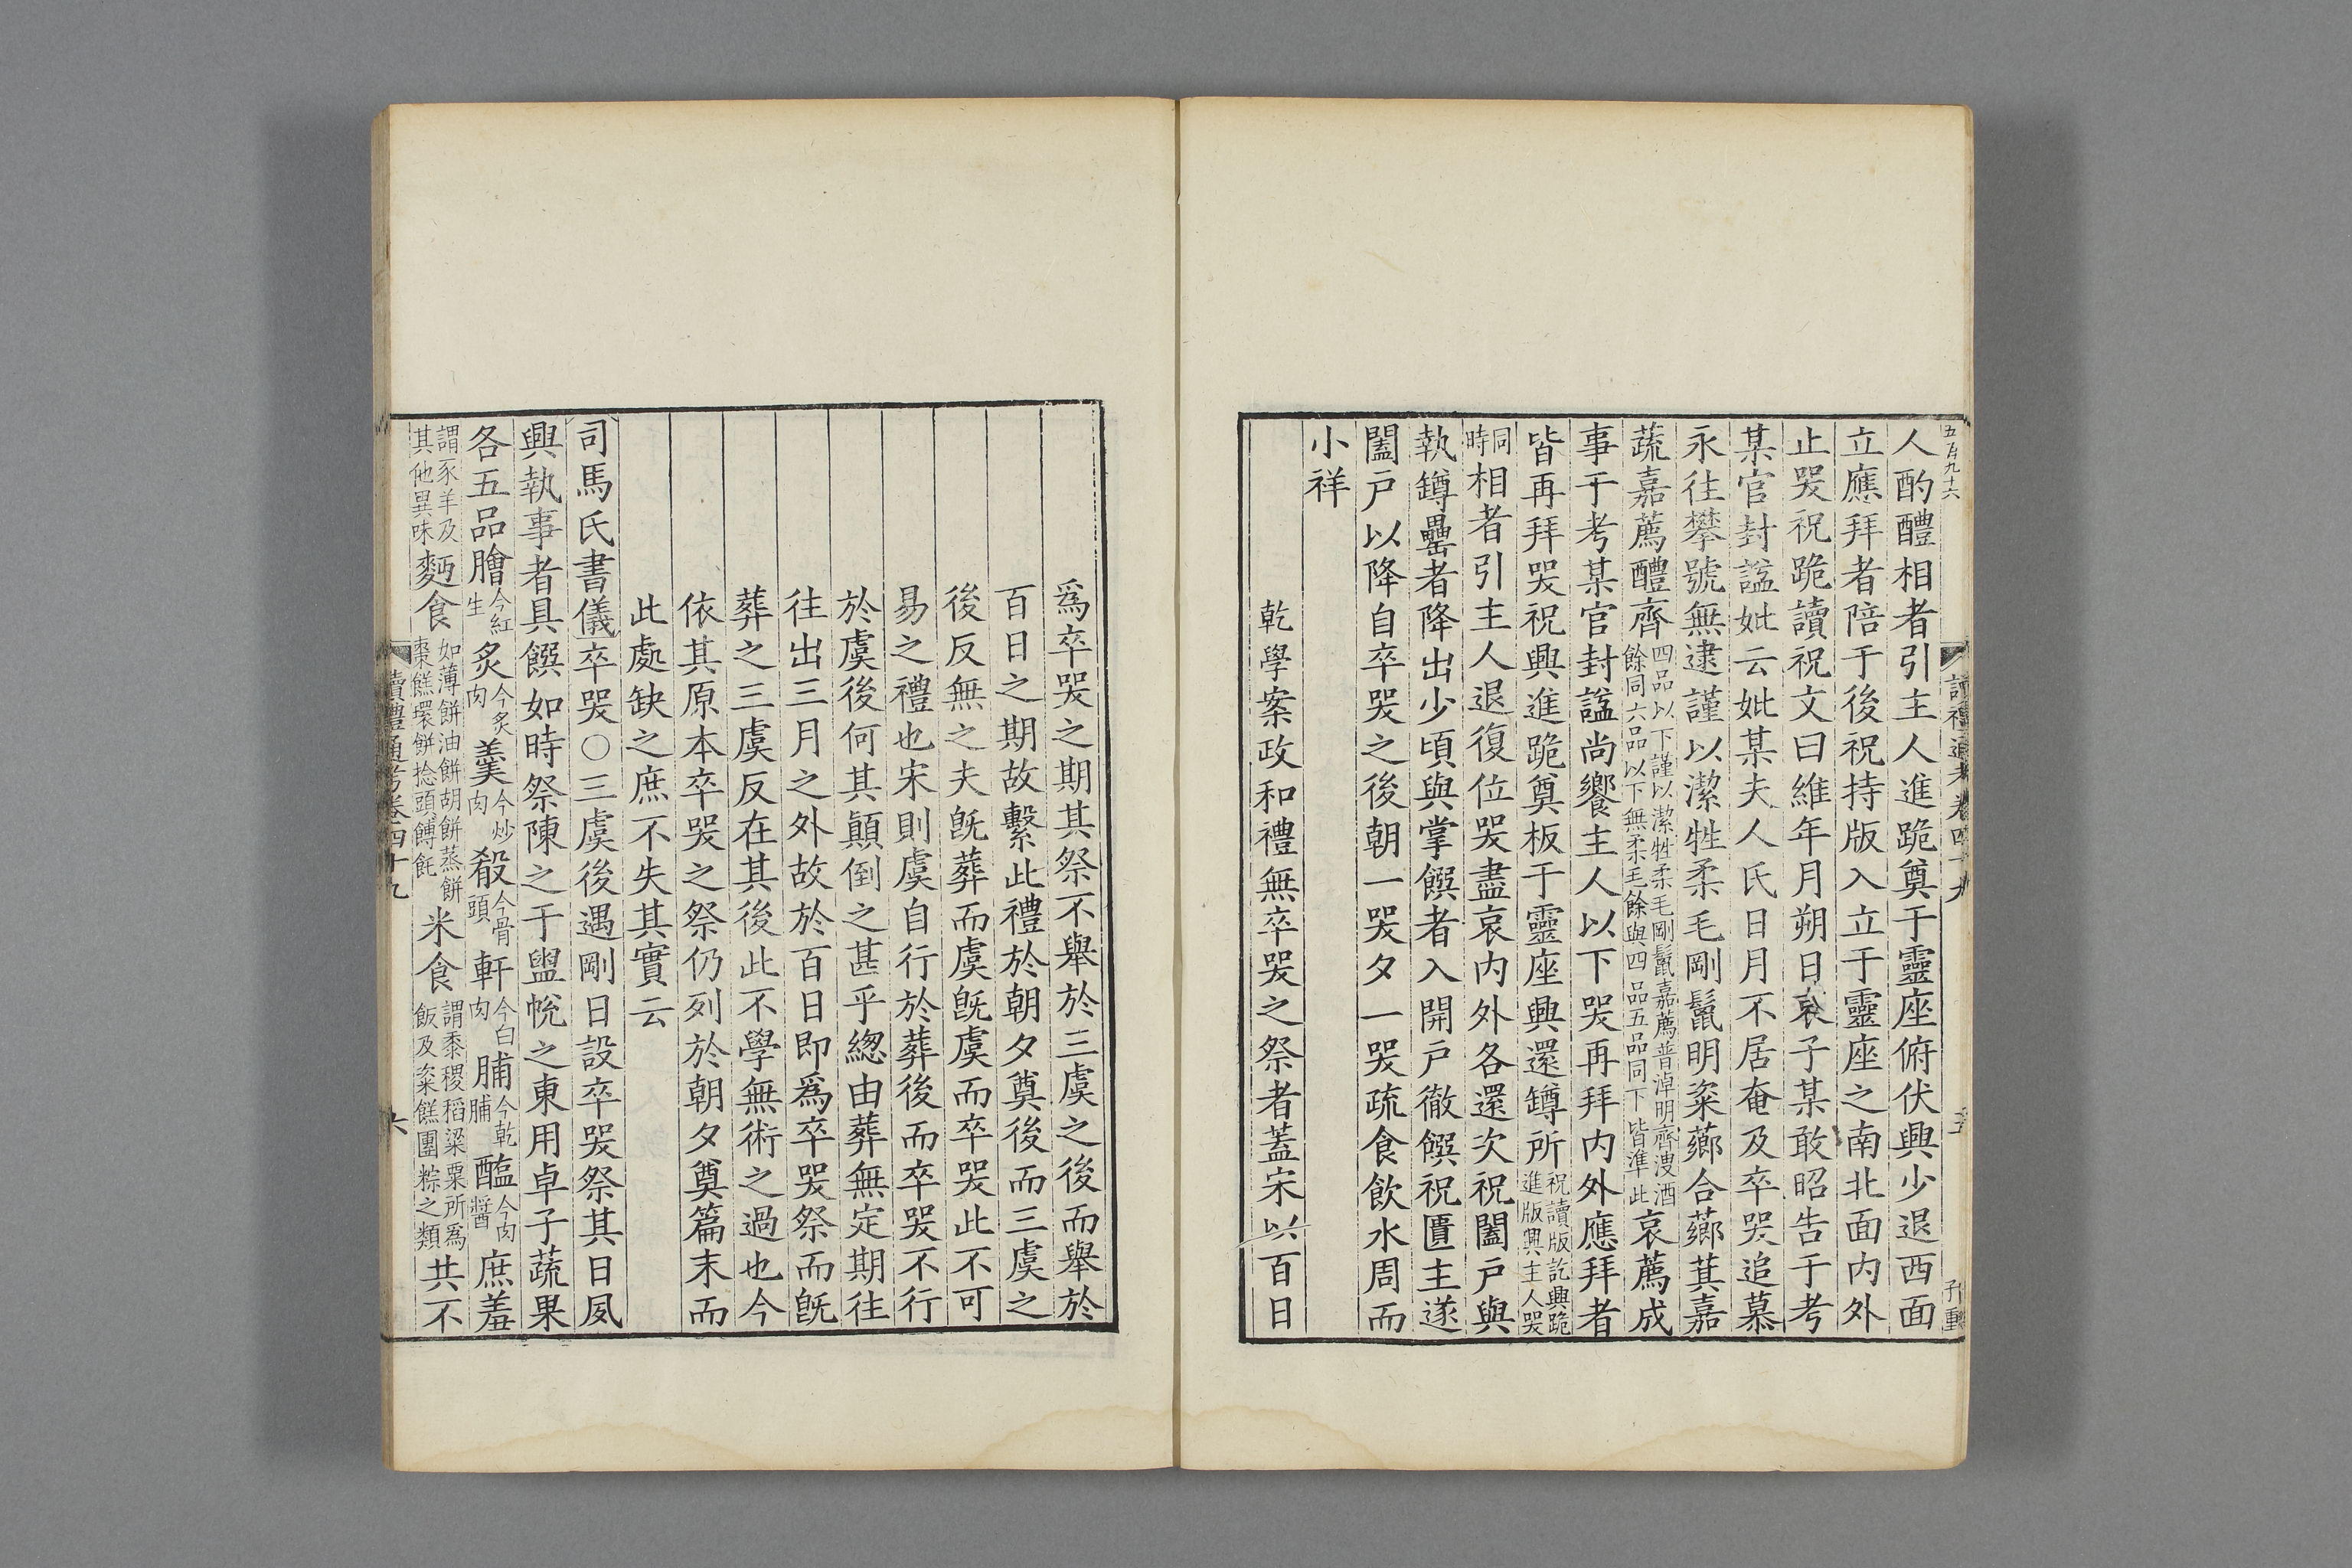 五百九十六
讀禮通考卷四十九
五
人酌醴相者引主人進跪奠于靈座俯伏興少退西面
立應拜者陪于後祝持版入立于靈座之南北面內外
止哭祝跪讀祝文曰維年月朔日哀子某敢昭告于考
某官封諡妣云妣某夫人氏日月不居奄及卒哭追慕
永往攀號無逮謹以潔牲柔毛剛鬛明粢薌合薌萁嘉
蔬嘉薦醴齊四品以下謹以潔牲柔毛剛鬛嘉薦普淖明齊溲酒餘同六品以下無柔毛餘與四品五品同下皆準此哀薦成
事于考某官封諡尚饗主人以下哭再拜內外應拜者
皆再拜哭祝興進跪奠板于靈座興還罇所祝讀版訖興跪進版興主人哭
同時相者引主人退復位哭盡哀內外各還次祝闔戶與
執罇罍者降出少頃與掌饌者入開戶徹饌祝匱主遂
闔戶以降自卒哭之後朝一哭夕一哭疏食飲水周而
小祥
乾學案政和禮無卒哭之祭者蓋宋以百日
爲卒哭之期其祭不舉於三虞之後而舉於
百日之期故繫此禮於朝夕奠後而三虞之
後反無之夫旣葬而虞旣虞而卒哭此不可
易之禮也宋則虞自行於葬後而卒哭不行
於虞後何其顛倒之甚乎緫由葬無定期往
往出三月之外故於百日即爲卒哭祭而旣
葬之三虞反在其後此不學無術之過也今
依其原本卒哭之祭仍列於朝夕奠篇末而
此處缺之庶不失其實云
司馬氏書儀卒哭〇三虞後遇剛日設卒哭祭其日夙
興執事者具饌如時祭陳之于盥帨之東用卓子蔬果
各五品膾今紅生炙今炙肉羹今炒肉殽今骨頭軒今白肉脯今乾脯醢今肉醬庶羞
謂豕羊及其他異味麪食如薄餅油餅胡餅蒸餅棗餻環餅捻頭餺飥米食謂黍稷稻粱粟所爲飯及粢餻團粽之類共不
讀禮通考卷四十九
六